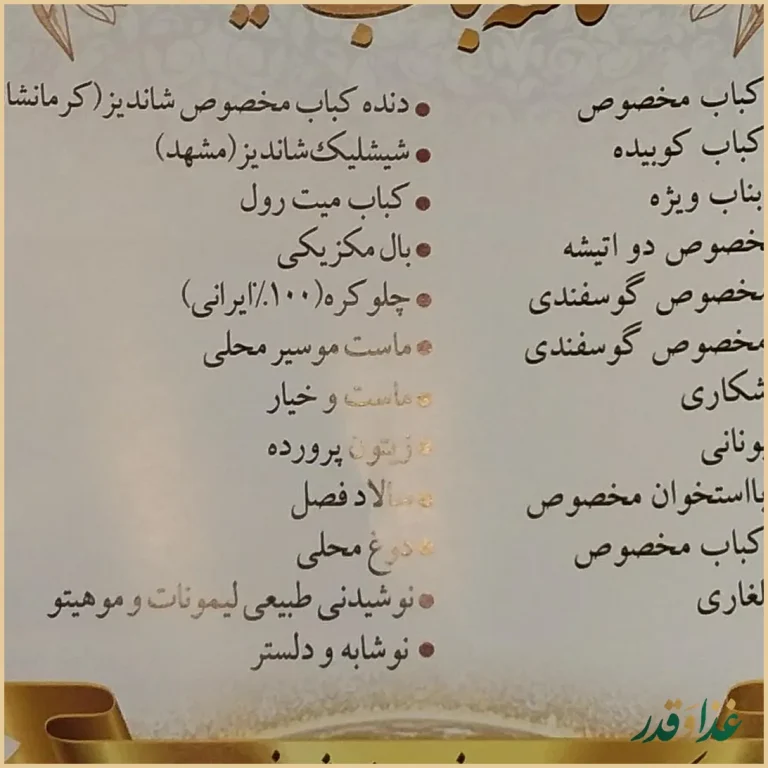 کباب مخصوص
کباب کوبیده
بناب ویژه
مخصوص دو اتیشه
مخصوص گوسفندی
مخصوص گوسفندی
شکاری
یونانی
بااستخوان مخصوص
کباب مخصوص
لغاری
● دنده کباب مخصوص شاندیز(کرمانشا
● شیشلیک شاندیز(مشهد)
● کباب میت رول
● بال مکزیکی
● چلو کره(۱۰۰٪ایرانی)
● ماست موسیر محلی
● ماست و خیار
● زیتون پرورده
● سالاد فصل
● دوغ محلی
● نوشیدنی طبیعی لیمونات و موهیتو
● نوشابه و دلستر
غذا و قدر